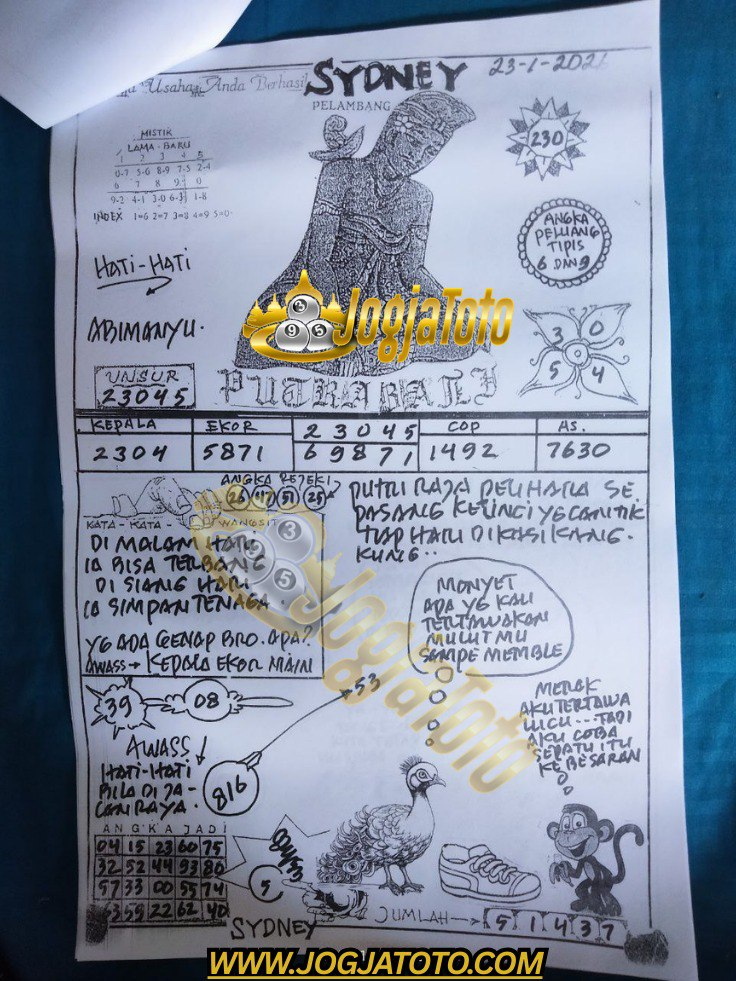 Usaha Anda Berhasil
SYDNEY
23-1-202
PELAMBANG
MISTIK
LAMA - BARU
1 2 3 4 5
0-7 5-6 8-9 7-5 2-4
6 7 8 9 0
9-2 4-1 3-0 6-3 1-8
INDEX 1=6 2=7 3=8 4=9 5=0
230
ANGKA
PELUANG
TIPIS
6 DAN 9
HATI-HATI
ABIMANYU.
3 0
5 4
JogjaToto
3
9 5
UNSUR
23045
PUTRA BALI
KEPALA
2304
EKOR
5871
23045
69871
COP
1492
AS.
7630
ANGKA REJEKI
26 47 51 25
KATA - KATA - WANGSIT
DI MALAM HATI
IA BISA TERBANG
DI SIANG HARI
IA SIMPAN TENAGA.
YG ADA GENAP BRO. APA?
AWASS → KEPALA EKOR MAIN
PUTRI RAJA PELIHARA SE.
PASANG KELINCI YG CANTIK
TIAP HARI DI KASI KANG.
KUNG..
JogjaToto
3
9 5
MONYET
ADA YG KAU
TERTAWAKAN
MULUT MU
SAMPE MEMBLE
53
MERAK
AKU TERTAWA
LUCU...TADI
AKU COBA
SEPATU ITU
KEBESARAN
39
08
AWASS
HATI-HATI
BILA DI JA-
LAN RAYA.
816
ANGKA JADI
04 15 23 60 75
32 52 44 93 80
57 33 00 55 74
63 59 22 62 40
5
SYDNEY
JUMLAH → 5 1 4 3 7
WWW.JOGJATOTO.COM